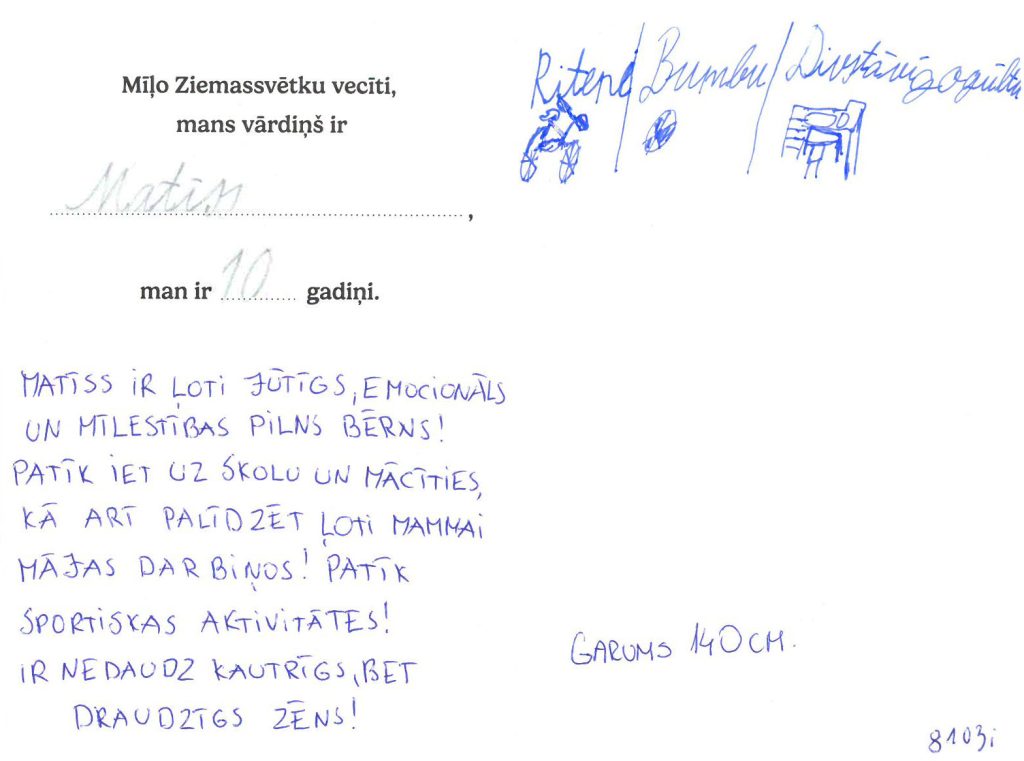 Mīļo Ziemassvētku vecīti,
mans vārdiņš ir
Matīss,
man ir 10 gadiņi.
MATĪSS IR ĻOTI JŪTĪGS, EMOCIONĀLS
UN MĪLESTĪBAS PILNS BĒRNS!
PATĪK IET UZ SKOLU UN MĀCĪTIES,
KĀ ARĪ PALĪDZĒT ĻOTI MAMMAI
MĀJAS DARBIŅOS! PATĪK
SPORTISKAS AKTIVITĀTES!
IR NEDAUDZ KAUTRĪGS, BET
DRAUDZĪGS ZĒNS!
Riteni/Bumbu/Divstāvīgo gultu
GARUMS 140CM.
8103i